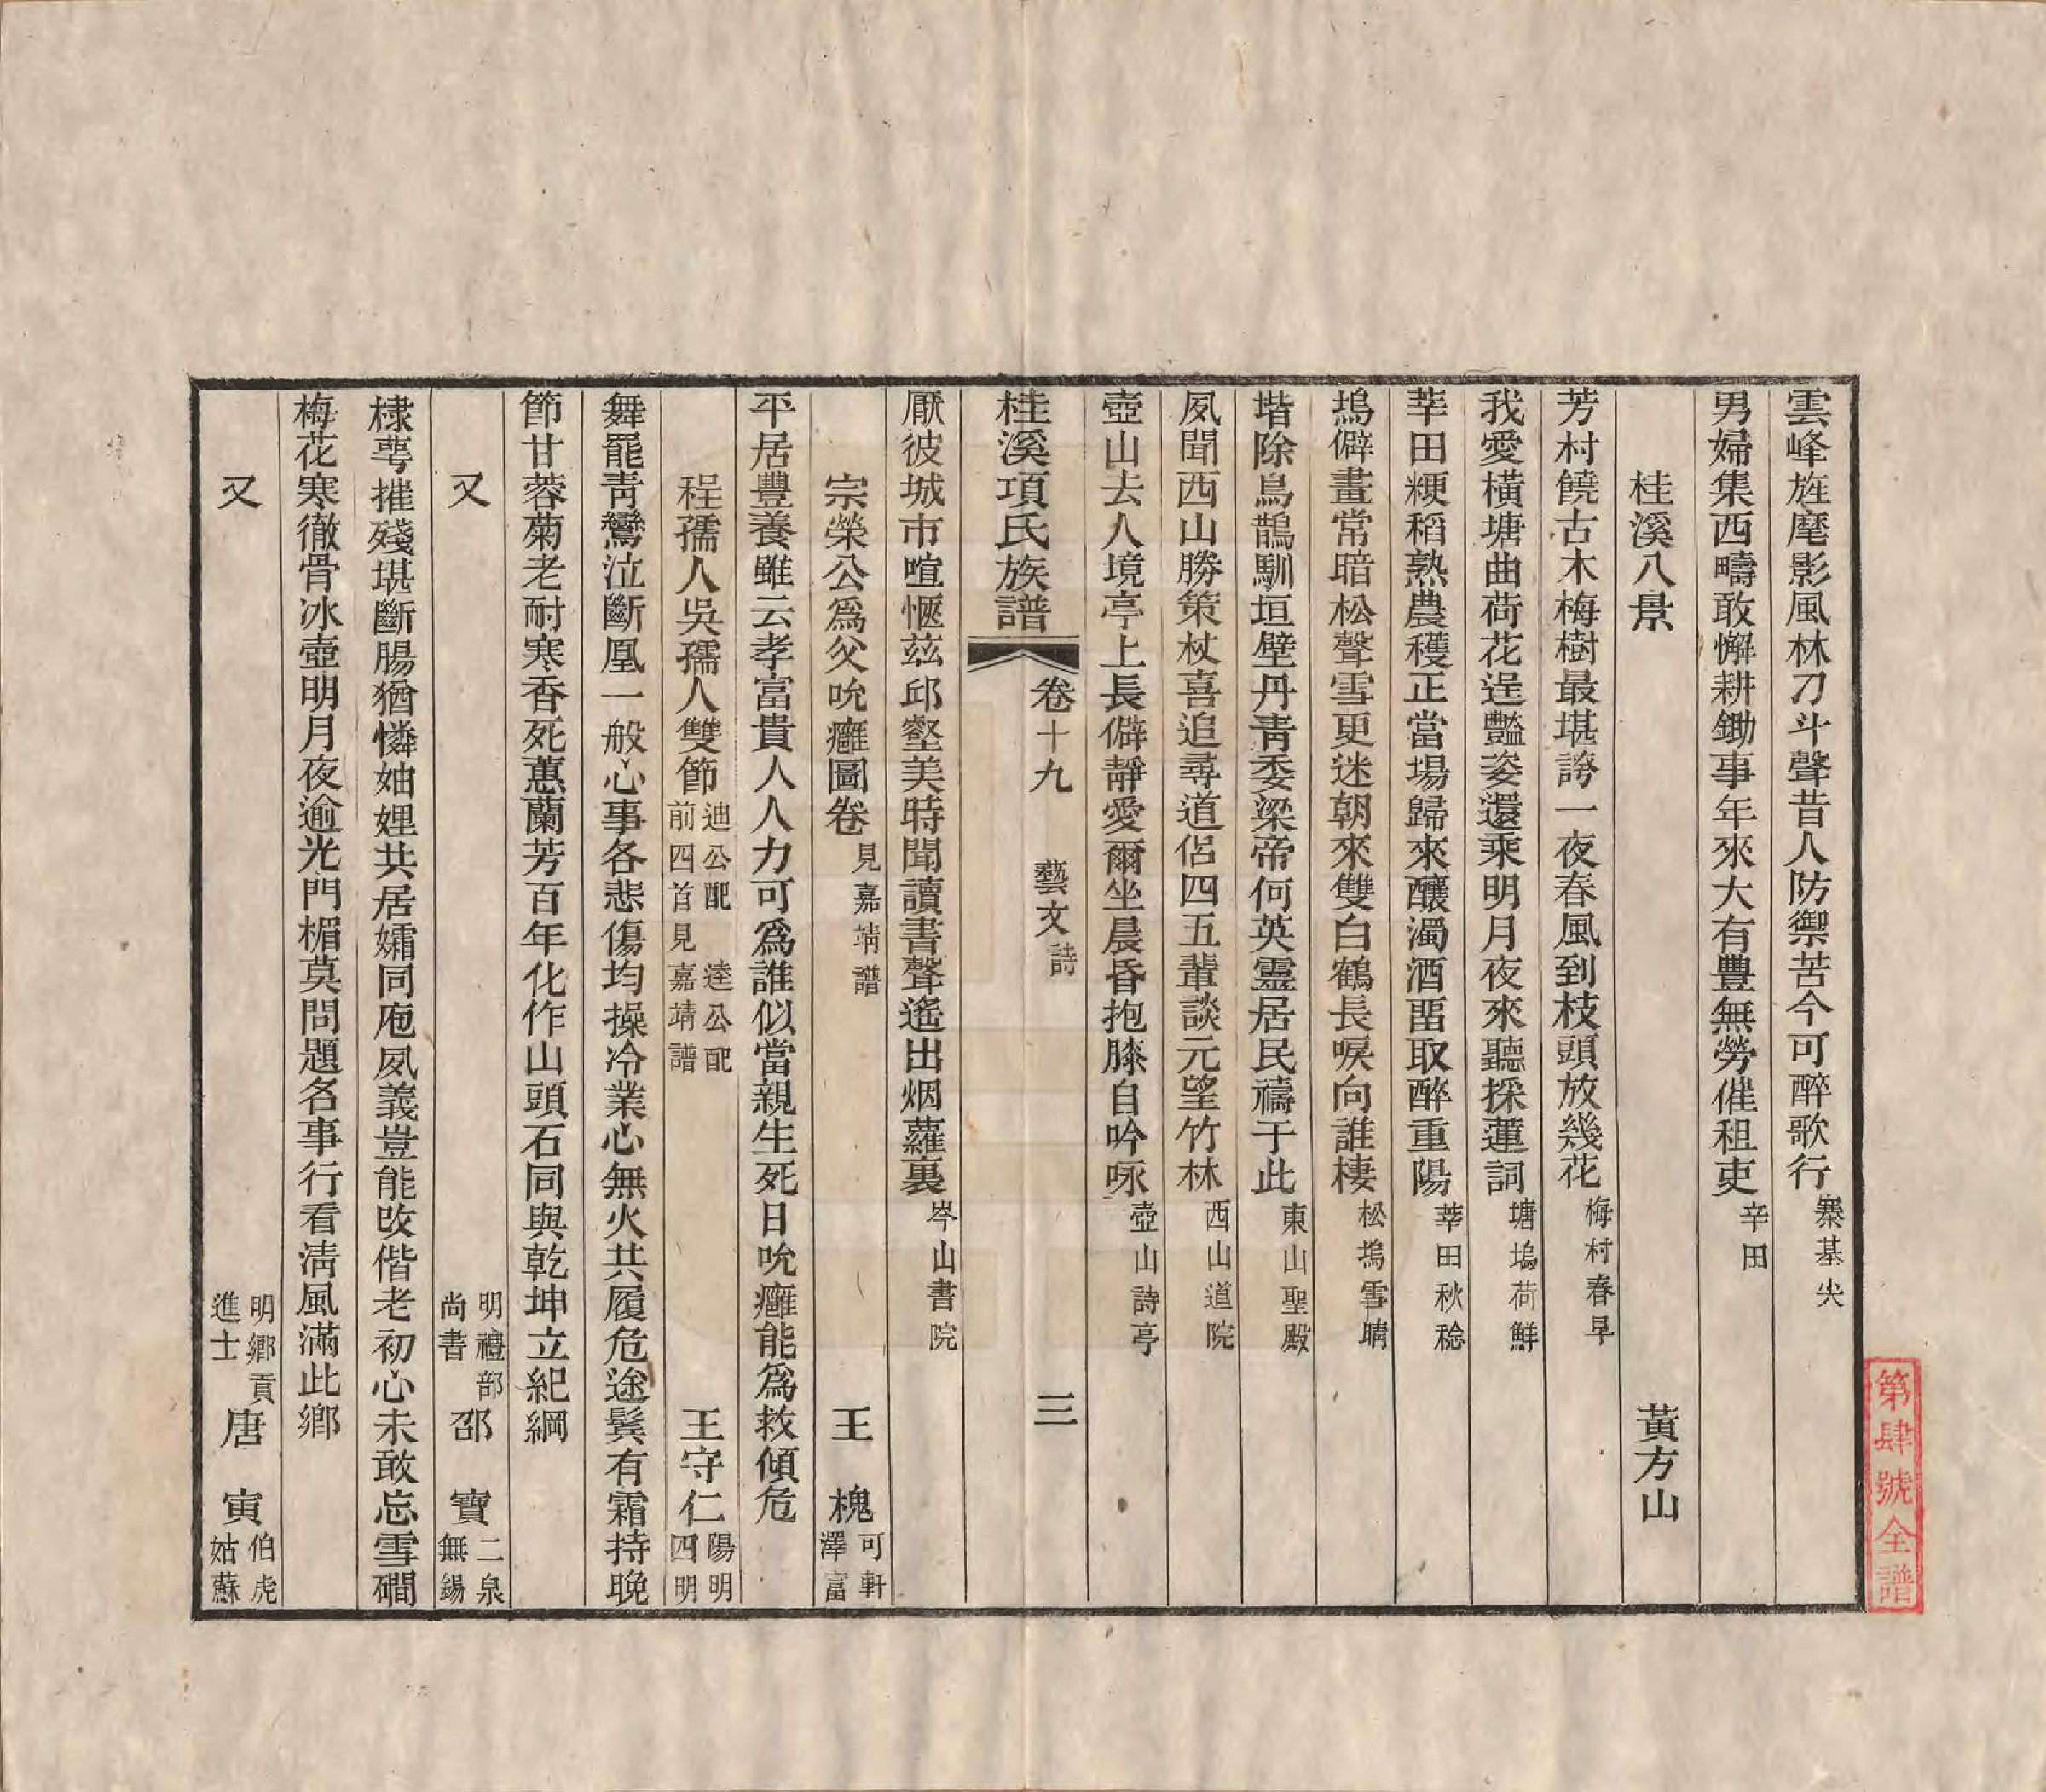 雲峰旌麾影風林刀斗聲昔人防禦苦今可醉歌行寨基尖
男婦集西疇敢懈耕鋤事年來大有豐無勞催租吏辛田
桂溪八景 黃方山
芳村饒古木梅樹最堪誇一夜春風到枝頭放幾花梅村春早
我愛橫塘曲荷花逞豔姿還乘明月夜來聽採蓮詞塘塢荷鮮
莘田粳稻熟農穫正當場歸來釀濁酒畱取醉重陽莘田秋稔
塢僻晝常暗松聲雪更迷朝來雙白鶴長唳向誰棲松塢雪晴
堦除鳥鵲馴垣壁丹靑委梁帝何英霊居民禱于此東山聖殿
夙聞西山勝策杖喜追尋道侶四五輩談元望竹林西山道院
壺山去人境亭上長僻靜愛爾坐晨昏抱膝自吟咏壺山詩亭
桂溪項氏族譜 卷十九 藝文詩 三
厭彼城市喧愜茲邱壑美時聞讀書聲遙出烟蘿裏岑山書院
宗榮公爲父吮癰圖卷見嘉靖譜 王 槐可軒澤富
平居豐養雖云孝富貴人人力可爲誰似當親生死日吮癰能爲救傾危
程孺人吳孺人雙節迪公配 逵公配前四首見嘉靖譜 王守仁陽明四明
舞罷靑鸞泣斷凰一般心事各悲傷均操冷業心無火共履危途鬓有霜持晚
節甘蓉菊老耐寒香死蕙蘭芳百年化作山頭石同與乾坤立紀綱
又 明禮部尚書 邵 寶二泉無錫
棣萼摧殘堪斷腸猶憐妯娌共居孀同庖夙義豈能改偕老初心未敢忘雪磵
梅花寒徹骨冰壺明月夜逾光門楣莫問題名事行看淸風滿此鄉
又 明鄉貢進士 唐 寅伯虎姑蘇
第肆號全譜